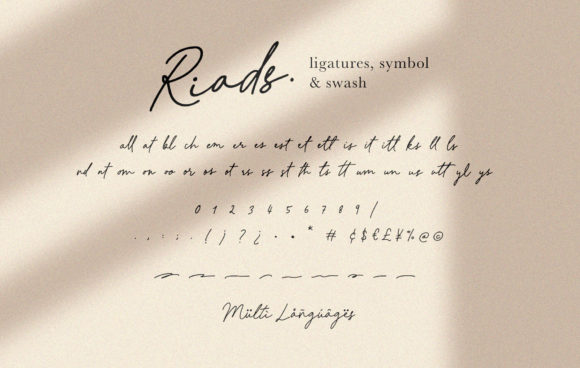 Riads.
ligatures, symbol
& swash
all at bl ch em er es est et ett is it itt ks ll ls
nd nt om on oo or os ot rs ss st th ts tt um un us utt yl ys
0 1 2 3 4 5 6 7 8 9 /
. , : ; . ( ) ? ¿ · • * # ¢ $ € £ ¥ % @ ©
Mülti Låñguâgës